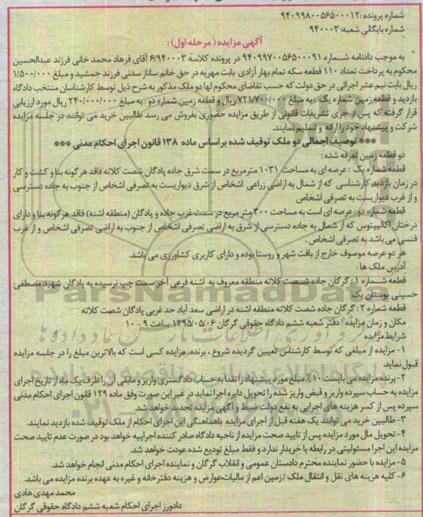 شماره پرونده: ۹۴۰۹۹۸۰۰۵۶۵۰۰۰۱۲
شماره بایگانی شعبه: ۹۴۰۰۰۳
آگهی مزایده (مرحله اول):
به موجب دادنامه شماره ۹۴۰۹۹۷۰۰۵۶۵۰۰۰۹۱ در پرونده کلاسه ۶/۹۴۰۰۰۳ آقای فرهاد محمد خانی فرزند عبدالحسین
محکوم به پرداخت تعداد ۱۱۰ قطعه سکه تمام بهار آزادی بابت مهریه در حق خانم ساناز سدنی فرزند جمشید و مبلغ ۱/۵۰۰/۰۰۰
ریال بابت نیم عشر اجرائی در حق دولت که حسب تقاضای محکوم لها دو ملک مذکور به شرح ذیل توسط کارشناسان منتخب دادگاه
بازدید و قطعه زمین شماره یک: به مبلغ ۷۲۱/۷۰۰/۰۰۰ ریال و قطعه زمین شماره دو: به مبلغ ۲۴۰/۰۰۰/۰۰۰ ریال مورد ارزیابی
قرار گرفته که پس از جری تشریفات قانونی از طریق مزایده حضوری بفروش می رسد طالبین خرید می توانند در جلسه مزایده
شرکت و پیشنهاد خود را ارائه و تسلیم نمایند.
*** توصیف اجمالی دو ملک توقیف شده براساس ماده ۱۳۸ قانون اجرای احکام مدنی ***
دو قطعه زمین تعرفه شده:
قطعه شماره یک: عرصه ای به مساحت ۱۰۳۱ مترمربع در سمت شرق جاده پادگان شصت کلاته فاقد هرگونه بنا و کشت و کار
در زمان بازدید کارشناسی که از شمال به اراضی زراعی اشخاص از شرق دیواریست به تصرفی اشخاص از جنوب به جاده دسترسی
و از غرب دیواریست به تصرفی اشخاص
قطعه شماره دو: عرصه ای است به مساحت ۳۰۰ متر مربع در سمت غرب جاده و پادگان (منطقه اشنه) فاقد هرگونه بنا و دارای
درختان اکالیپتوس که از شمال به جاده دسترسی از شرق به اراضی تصرفی اشخاص از جنوب به اراضی تصرفی اشخاص و از غرب
فنسی می باشد به تصرفی اشخاص.
هر دو عرصه موصوف خارج از بافت شهر و روستا بوده و دارای کاربری کشاورزی می باشد
آدرس ملک ها:
قطعه شماره ۱: گرگان جاده شصت کلاته منطقه معروف به اشنه فرعی آخر سمت چپ نرسیده به پادگان شهید مصطفی
حسینی بوستان یک
قطعه شماره ۲: گرگان جاده شصت کلاته منطقه اشنه در اراضی سعد آباد حد غربی پادگان شصت کلاته
مکان و زمان مزایده: دفتر شعبه ششم دادگاه حقوقی گرگان ۱۳۹۵/۰۵/۰۶ ساعت ۹ - ۱۰
شرایط مزایده
۱- مزایده از مبلغی که توسط کارشناس تعیین گردیده شروع، برنده مزایده کسی است که بالاترین مبلغ را در جلسه مزایده
قبول نماید
۲- برنده مزایده می بایست ۱۰٪ مبلغ مورد پیشنهاد را نقدا به حساب دادگستری واریز و مابقی آن را ظرف یک ماه از تاریخ اجرای
مزایده به حساب سپرده واریز و قبض واریز شده را تحویل دایره اجرا نماید در غیر این صورت وفق ماده ۱۲۹ قانون اجرای احکام مدنی
سپرده پس از کسر هزینه های اجرایی به نفع دولت ضبط و آگهی مزایده تجدید خواهد شد.
۳- طالبین خرید می توانند یک هفته قبل از اجرای مزایده باهماهنگی این اجرای احکام از ملک توقیف شده بازدید نمایند.
۴- تحویل مال مورد مزایده پس از تایید صحت مزایده از ناحیه دادگاه صادر کننده اجراییه خواهد بود در صورت عدم تایید صحت
مزایده این اجرا مسئولیتی در رابطه با خریدار ندارد و فقط مبلغ تودیع شده عودت خواهد شد.
۵- مزایده با حضور نماینده محترم دادستان عمومی و انقلاب گرگان و نماینده اجرای احکام مدنی انجام خواهد شد.
۶- کلیه هزینه های نقل و انتقال ملک / زمین اعم از مالیات عوارض و هزینه دفترخانه و غیره به عهده برنده مزایده می باشد.
محمد مهدی هادی
دادورز اجرای احکام شعبه ششم دادگاه حقوقی گرگان